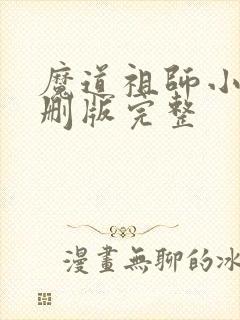 魔道祖師小
刪版完整
漫畫無聊的冰